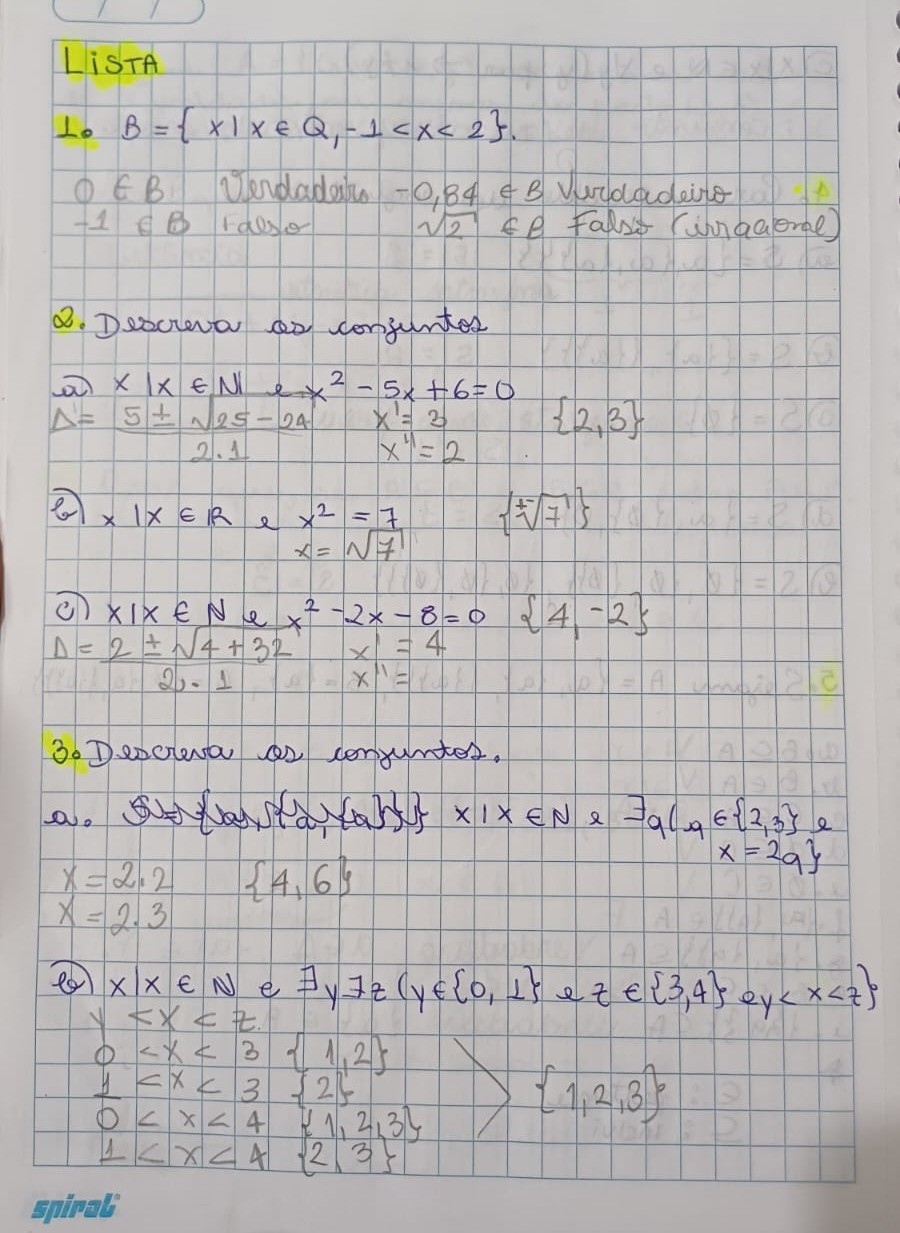 LISTA
1. B = { x | x ∈ Q, -1 < x < 2 }.
0 ∈ B Verdadeiro -0,84 ∈ B Verdadeiro
-1 ∈ B Falso √2 ∈ B Falso (irracional)
2. Descreva os conjuntos
a) x | x ∈ N e x² - 5x + 6 = 0
Δ = 5 ± √25 - 24 x' = 3 {2,3}
2.1 x'' = 2
b) x | x ∈ R e x² = 7 {±√7}
x = √7
c) x | x ∈ N e x² - 2x - 8 = 0 {4, -2}
Δ = 2 ± √4 + 32 x' = 4
2.1 x'' =
3. Descreva os conjuntos.
a. x | x ∈ N e ∃q(q ∈ {2,3} e
x = 2q}
x = 2.2 {4,6}
x = 2.3
b) x | x ∈ N e ∃y∃z (y ∈ {0, 1} e z ∈ {3,4} e y < x < z}
y < x < z
0 < x < 3 {1,2}
1 < x < 3 {2} {1,2,3}
0 < x < 4 {1,2,3}
1 < x < 4 {2,3}
spiral